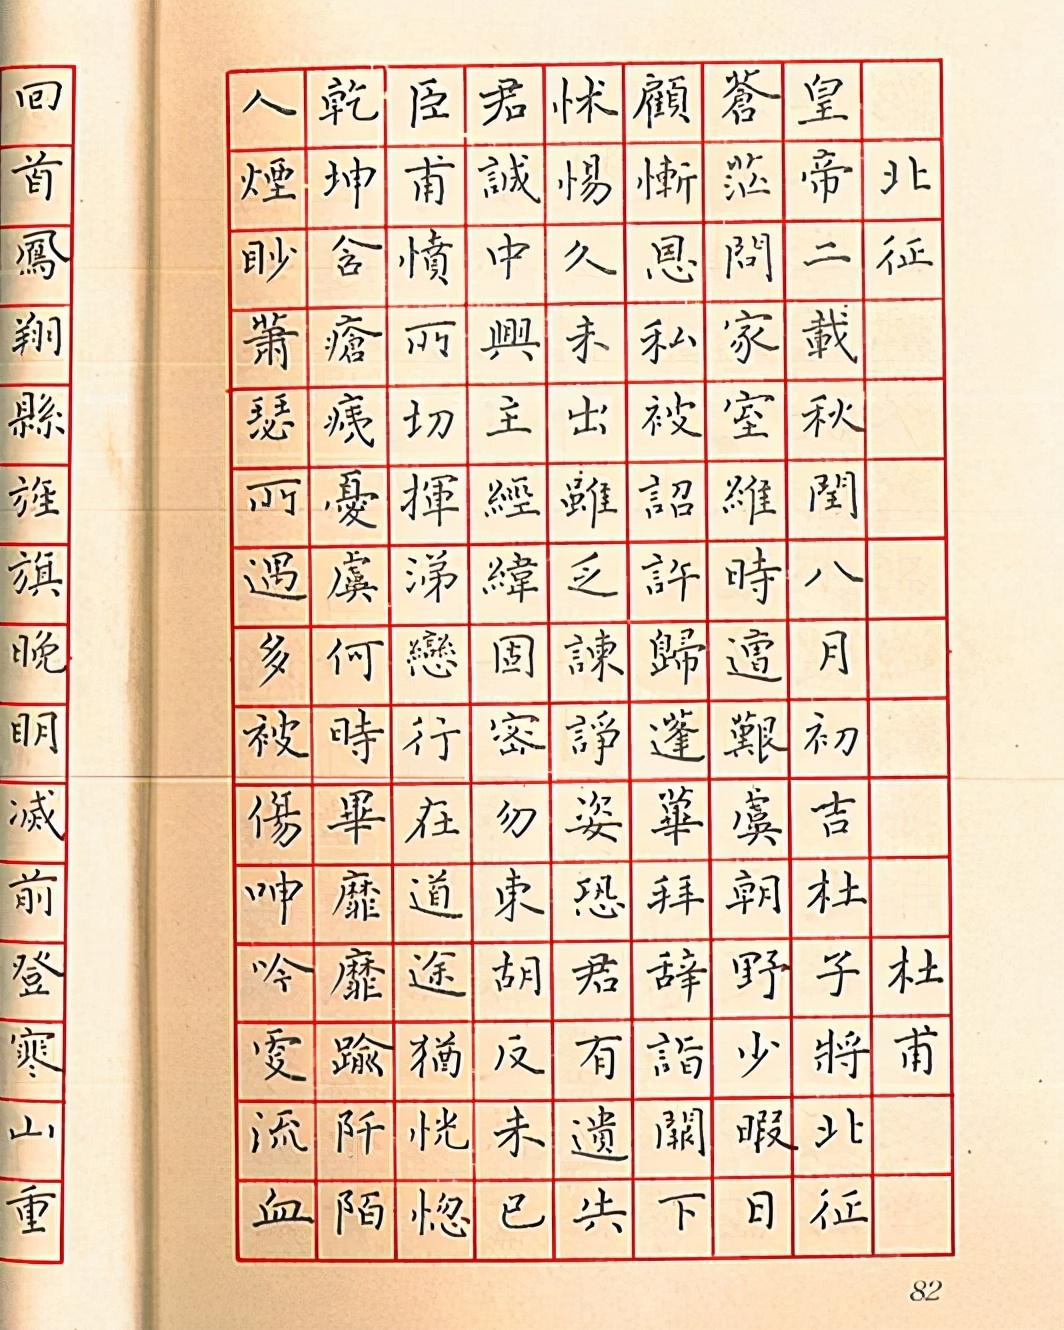 北征 杜甫
皇帝二載秋閏八月初吉杜子將北征
蒼茫問家室維時遭艱虞朝野少暇日
顧慚恩私被詔許歸蓬蓽拜辭詣闕下
怵惕久未出雖乏諫諍姿恐君有遺失
君誠中興主經緯固密勿東胡反未已
臣甫憤所切揮涕戀行在道途猶恍惚
乾坤含瘡痍憂虞何時畢靡靡踰阡陌
人煙眇蕭瑟所遇多被傷呻吟更流血
回首鳳翔縣旌旗晚明滅前登寒山重
82